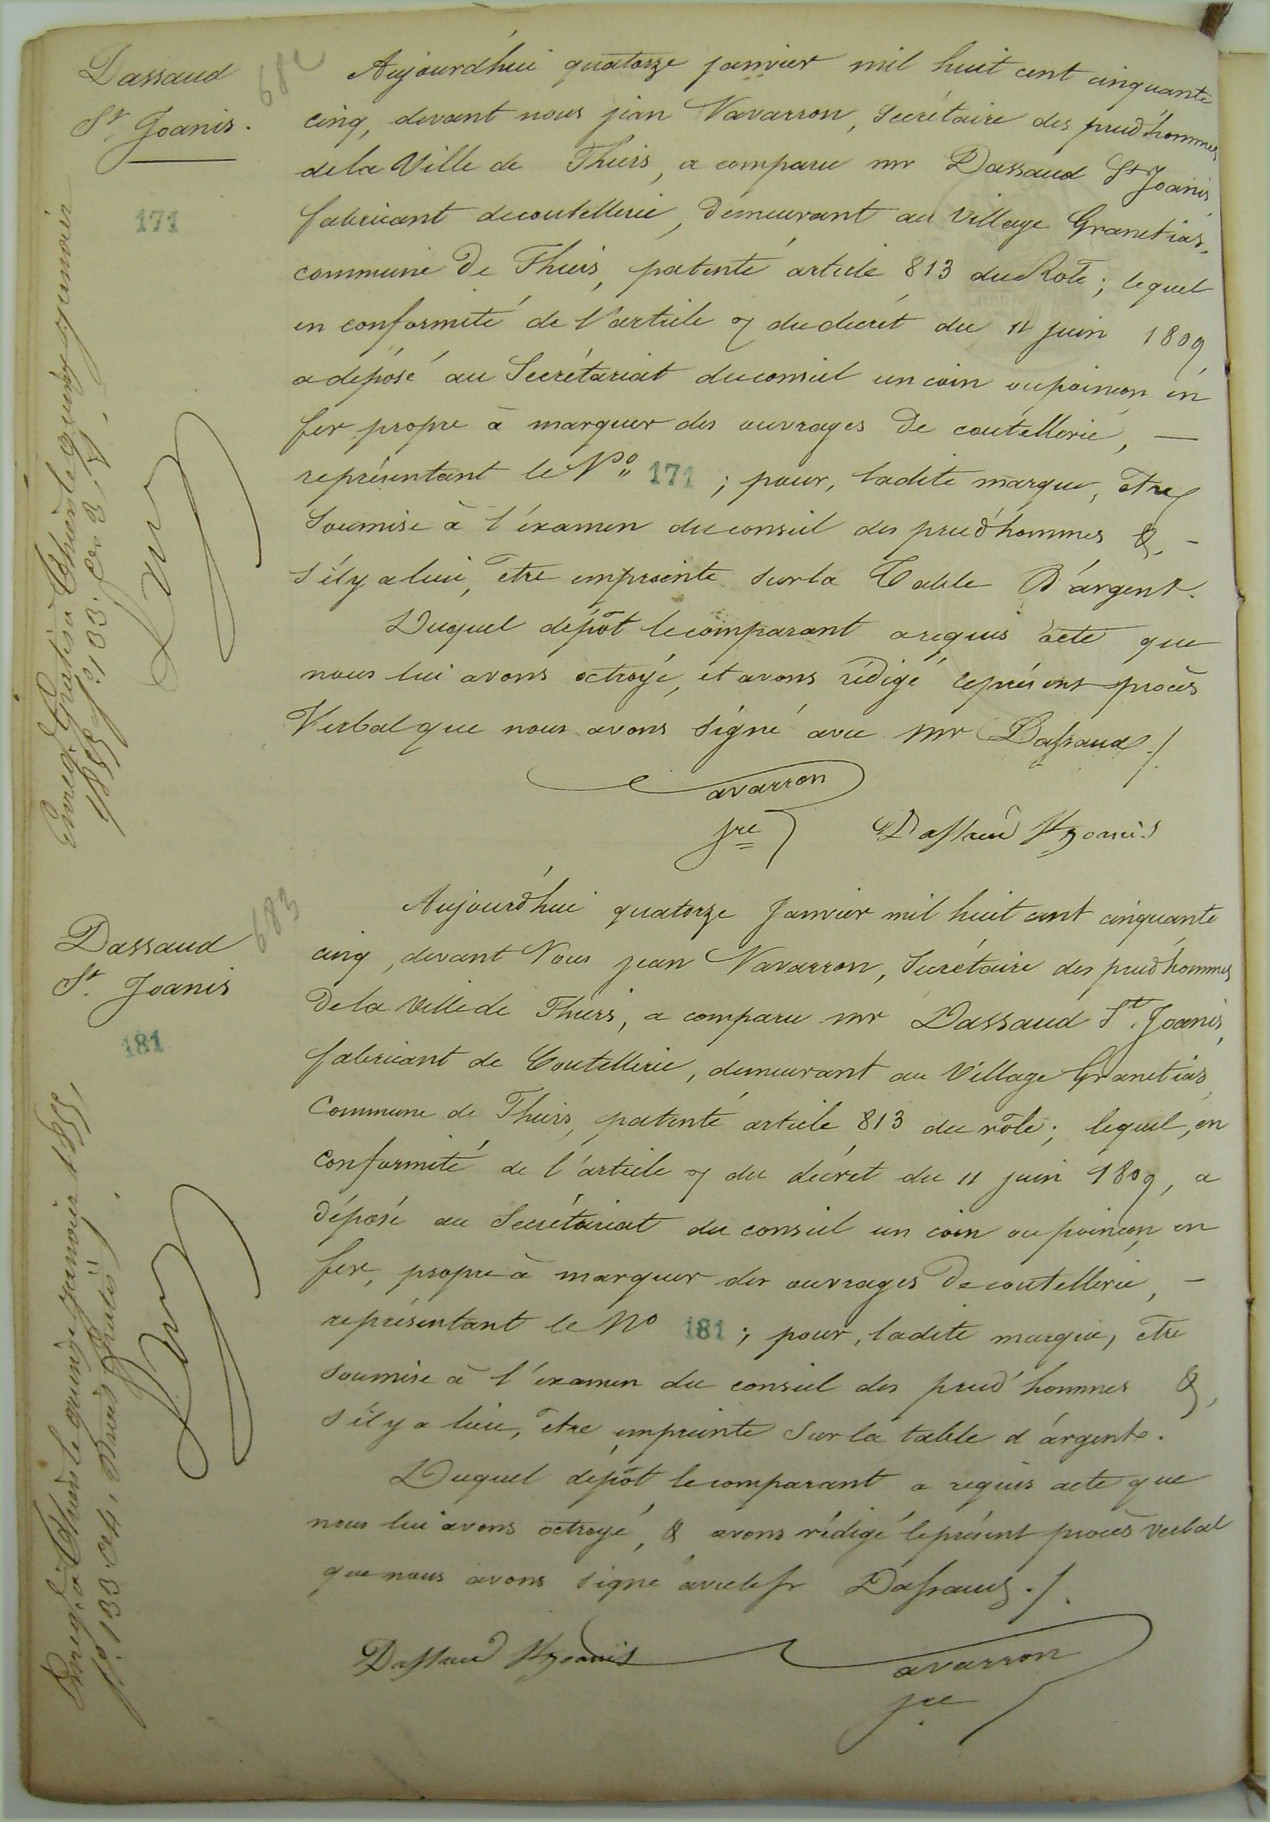 Dassaud
St. Joanis.
682
171
Aujourd'hui quatorze janvier mil huit cent cinquante
cinq, devant nous jean Navarron, Secrétaire des prud'hommes
de la Ville de Thiers, a comparu mr Dassaud St Joanis,
fabricant de coutellerie, demeurant au village Granetias,
commune de Thiers, patenté article 813 du Role; lequel
en conformité de l'article 7 du decret du 11 juin 1809
a déposé au Secrétariat du conseil un coin ou poinçon en
fer propre à marquer des ouvrages de coutellerie, —
représentant le No 171 ; pour, ladite marque, être
Soumise à l'éxamen du conseil des prud'hommes &, -
s'il y a lieu, être empreinte sur la Table D'argent.
Duquel dépôt le comparant a requis acte que
nous lui avons octroyé, et avons rédigé le présent procès
Verbal que nous avons signé avec mr Dassaud ./.
Navarron
Dassaud St Joanis
Enreg. Gratis à Thiers le quinze janvier
1855 fo. 133. Co. 3
683
Dassaud
St. Joanis
181
Aujourd'hui quatorze Janvier mil huit cent cinquante
cinq, devant Nous jean Navarron, Secrétaire des prud'hommes
De la Ville de Thiers, a comparu mr Dassaud St. Joanis,
fabricant de Coutellerie, demeurant au Village Granetias,
Commune de Thiers, patenté article 813 du rôle; lequel, en
conformité de l'article 7 du décret du 11 juin 1809, a
déposé au Secrétariat du conseil un coin ou poinçon en
fer, propre à marquer des ouvrages de coutellerie, -
représentant le No 181 ; pour, ladite marque, être
soumise à l'éxamen du conseil des prud'hommes &,
s'il y a lieu, être empreinte sur la table d'argent.
Duquel dépôt le comparant a requis acte que
nous lui avons octroyé, & avons rédigé le présent procès verbal
que nous avons signé avec le sr Dassaud ./.
Dassaud St Joanis Navarron
Enreg. à Thiers le quinze janvier 1855,
fo. 133. C 4, Gratis.